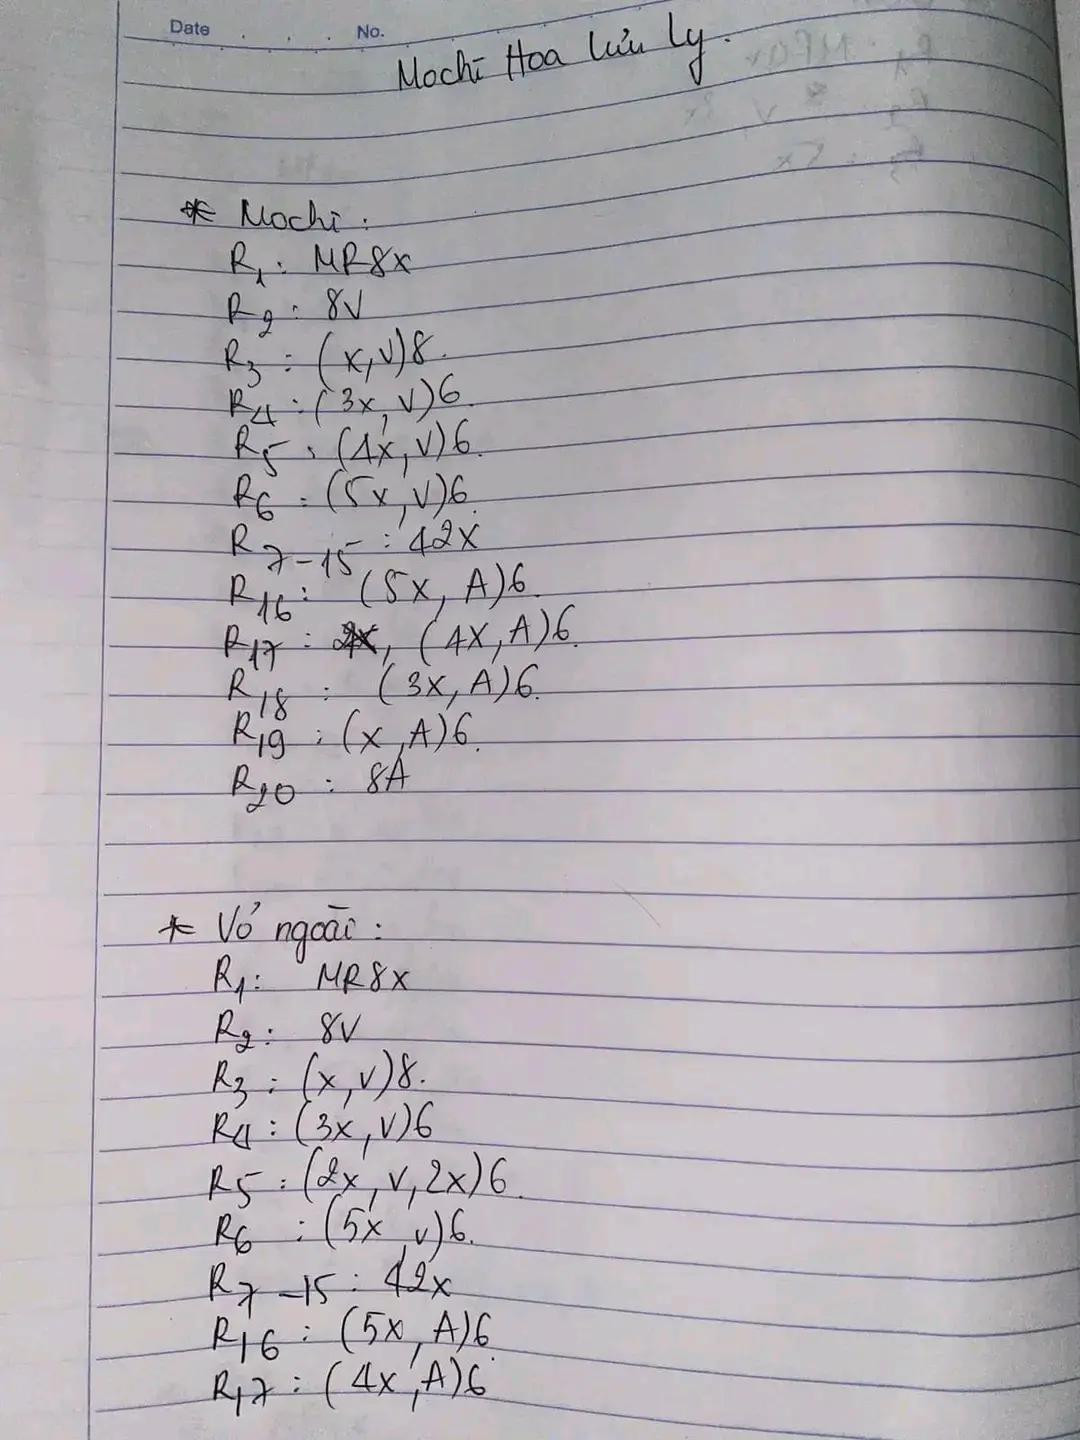 Date . . . No.
Mochi Hoa lưu ly.
* Mochi:
R1: MR8x
R2: 8V
R3: (x,V)8.
R4: (3x,V)6.
R5: (4x,V)6.
R6: (5x,V)6.
R7-15: 42x
R16: (5x, A)6.
R17: (4x,A)6.
R18: (3x,A)6.
R19: (x,A)6.
R20: 8A
* Vỏ ngoài:
R1: MR8x
R2: 8V
R3: (x,v)8.
R4: (3x,v)6
R5: (2x,v,2x)6.
R6: (5x,v)6.
R7-15: 42x
R16: (5x, A)6
R17: (4x,A)6